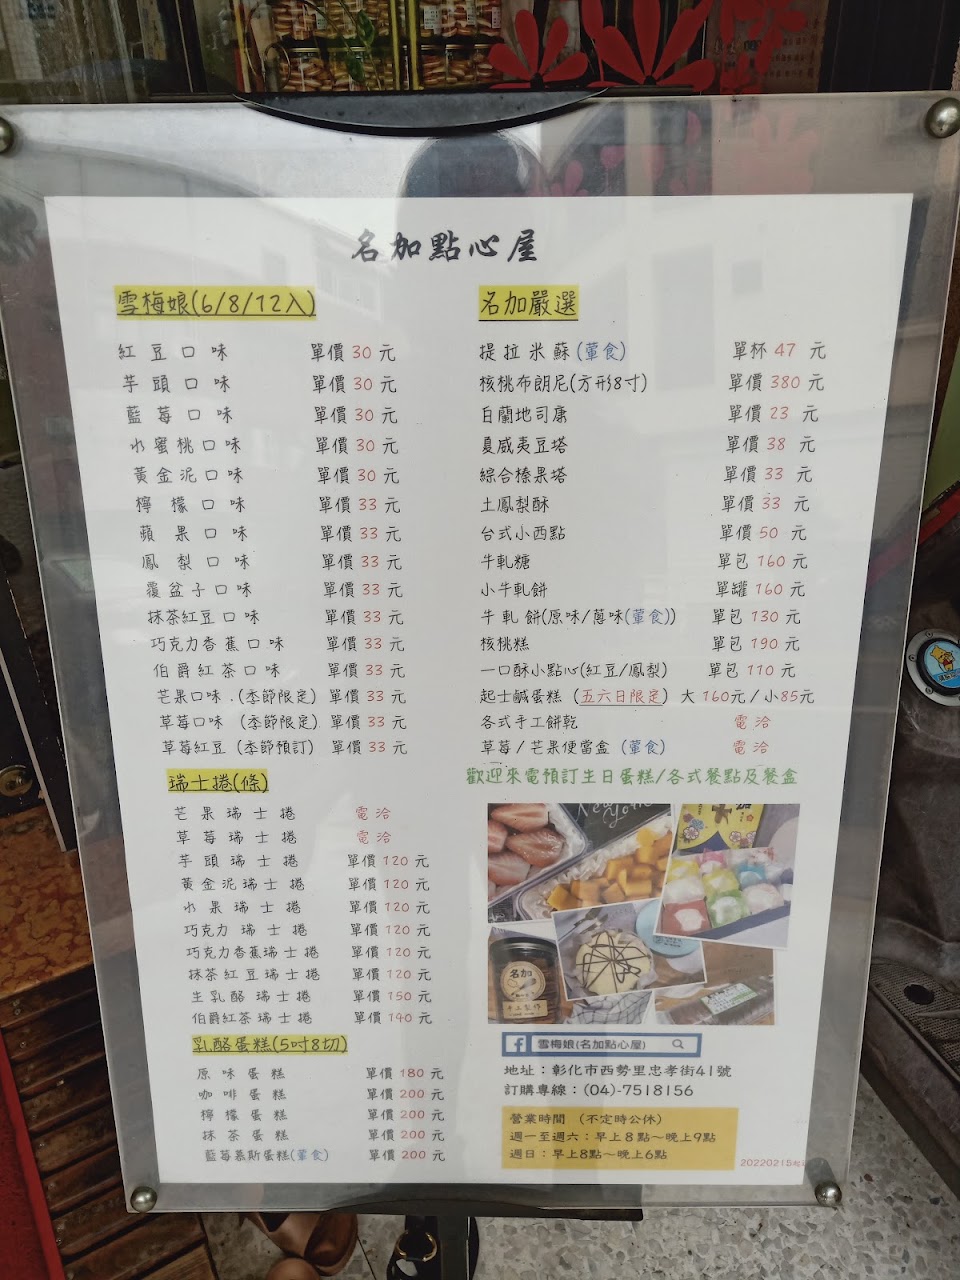 名加點心屋
雪梅娘(6/8/12入)
紅豆口味 單價 30 元
芋頭口味 單價 30 元
藍莓口味 單價 30 元
水蜜桃口味 單價 30 元
黃金泥口味 單價 30 元
檸檬口味 單價 33 元
蘋果口味 單價 33 元
鳳梨口味 單價 33 元
覆盆子口味 單價 33 元
抹茶紅豆口味 單價 33 元
巧克力香蕉口味 單價 33 元
伯爵紅茶口味 單價 33 元
芒果口味.(季節限定) 單價 33 元
草莓口味 (季節限定) 單價 33 元
草莓紅豆 (季節預訂) 單價 33 元
瑞士捲(條)
芒果瑞士捲 電洽
草莓瑞士捲 電洽
芋頭瑞士捲 單價 120 元
黃金泥瑞士捲 單價 120 元
水果瑞士捲 單價 120 元
巧克力瑞士捲 單價 120 元
巧克力香蕉瑞士捲 單價 120 元
抹茶紅豆瑞士捲 單價 120 元
生乳酪瑞士捲 單價 150 元
伯爵紅茶瑞士捲 單價 140 元
乳酪蛋糕(5吋8切)
原味蛋糕 單價 180 元
咖啡蛋糕 單價 200 元
檸檬蛋糕 單價 200 元
抹茶蛋糕 單價 200 元
藍莓慕斯蛋糕(葷食) 單價 200 元
名加嚴選
提拉米蘇(葷食) 單杯 47 元
核桃布朗尼(方形8寸) 單價 380 元
白蘭地司康 單價 23 元
夏威夷豆塔 單價 38 元
綜合榛果塔 單價 33 元
土鳳梨酥 單價 33 元
台式小西點 單價 50 元
牛軋糖 單包 160 元
小牛軋餅 單罐 160 元
牛軋餅(原味/蔥味(葷食)) 單包 130 元
核桃糕 單包 190 元
一口酥小點心(紅豆/鳳梨) 單包 110 元
起士鹹蛋糕 (五六日限定) 大 160元/小85元
各式手工餅乾 電洽
草莓/芒果便當盒 (葷食) 電洽
歡迎來電預訂生日蛋糕/各式餐點及餐盒
New York
名加
手工製作
雪梅娘(名加點心屋)
地址：彰化市西勢里忠孝街41號
訂購專線：(04)-7518156
營業時間 (不定時公休)
週一至週六：早上8點～晚上9點
週日：早上8點～晚上6點
20220215